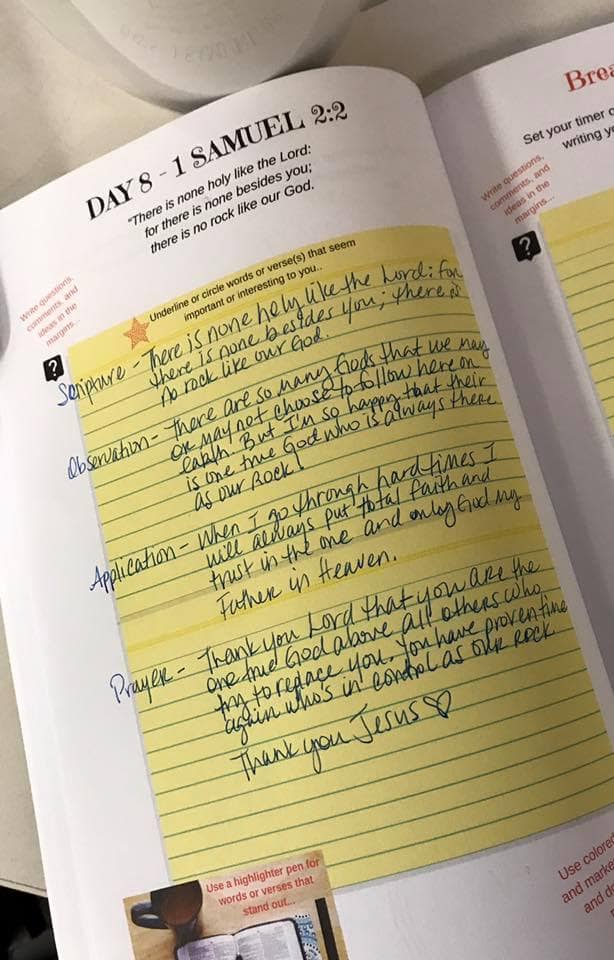 DAY 8 - 1 SAMUEL 2:2
"There is none holy like the Lord:
for there is none besides you;
there is no rock like our God.
Write questions,
comments, and
ideas in the
margins...
?
Underline or circle words or verse(s) that seem
important or interesting to you..
Scripture - There is none holy like the Lord: for
there is none besides you; there is
no rock like our God.
Observation - There are so many Gods that we may
or may not choose to follow here on
earth. But I'm so happy that their
is one true God who is always there
as our Rock!
Application - When I go through hard times I
will always put total faith and
trust in the one and only God my
Father in Heaven.
Prayer - Thank you Lord that you are the
one true God above all others who
try to replace you. You have proven time
again who's in control as our rock
Thank you Jesus ♡
Use a highlighter pen for
words or verses that
stand out...
Set your timer
writing
Write questions,
comments, and
ideas in the
margins...
?
Use colored
and
and